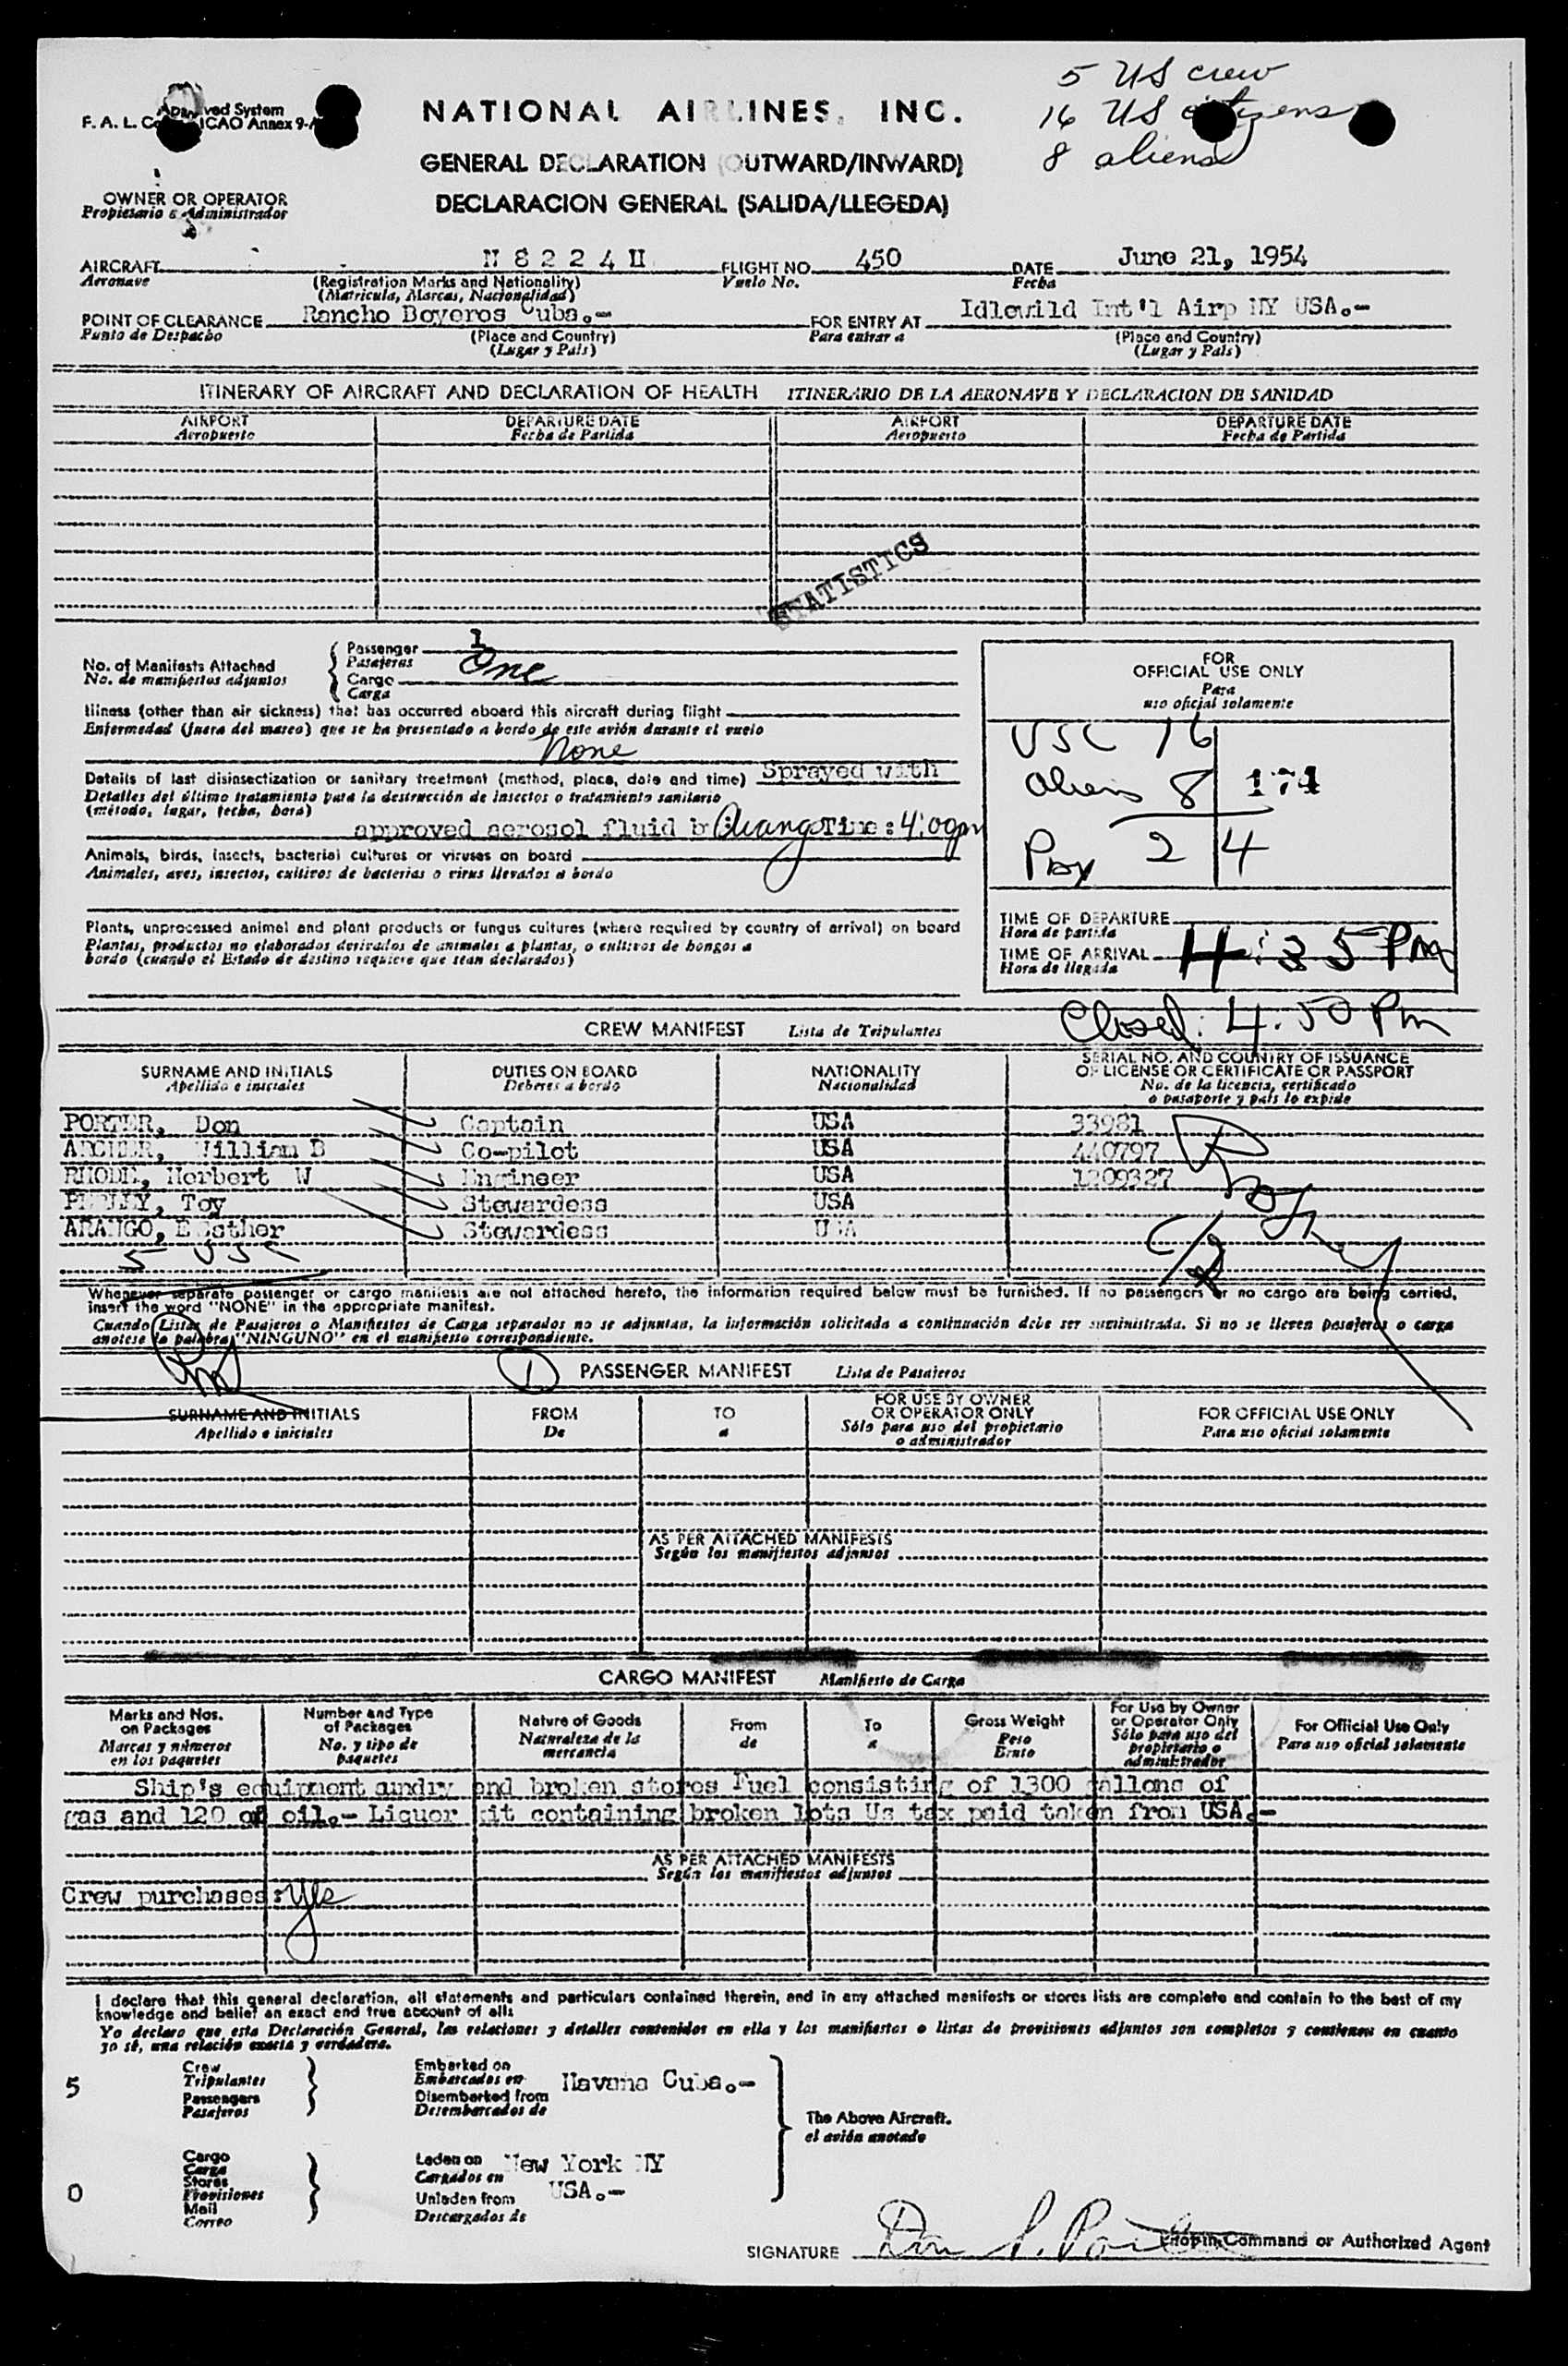 5 US crew
16 US citizens
8 aliens
Approved System
F. A. L. ICAO Annex 9-A
NATIONAL AIRLINES, INC.
GENERAL DECLARATION (OUTWARD/INWARD)
DECLARACION GENERAL (SALIDA/LLEGEDA)
OWNER OR OPERATOR
Propietario o Administrador
AIRCRAFT N 8 2 2 4 H FLIGHT NO. 450 DATE June 21, 1954
Aeronave (Registration Marks and Nationality) Vuelo No. Fecha
(Matricula, Marcas, Nacionalidad)
POINT OF CLEARANCE Rancho Boyeros Cuba.- FOR ENTRY AT Idlewild Int'l Airp NY USA.-
Punto de Despacho (Place and Country) Para entrar a (Place and Country)
(Lugar y País) (Lugar y País)
ITINERARY OF AIRCRAFT AND DECLARATION OF HEALTH ITINERARIO DE LA AERONAVE Y DECLARACION DE SANIDAD
AIRPORT DEPARTURE DATE AIRPORT DEPARTURE DATE
Aeropuerto Fecha de Partida Aeropuerto Fecha de Partida
STATISTICS
No. of Manifests Attached
No. de manifiestos adjuntos
Passenger 1
Pasajeros One
Cargo
Carga
Illness (other than air sickness) that has occurred aboard this aircraft during flight
Enfermedad (fuera del mareo) que se ha presentado a bordo de este avión durante el vuelo
None
Details of last disinsectization or sanitary treatment (method, place, date and time) Sprayed with
Detalles del último tratamiento para la destrucción de insectos o tratamiento sanitario
(método, lugar, fecha, hora)
approved aerosol fluid Time: 4:00pm
Animals, birds, insects, bacterial cultures or viruses on board
Animales, aves, insectos, cultivos de bacterias o virus llevados a bordo
Plants, unprocessed animal and plant products or fungus cultures (where required by country of arrival) on board
Plantas, productos no elaborados derivados de animales o plantas, o cultivos de hongos a
bordo (cuando el Estado de destino requiere que sean declarados)
FOR
OFFICIAL USE ONLY
Para
uso oficial solamente
USC 16
aliens 8 174
Pax 24
TIME OF DEPARTURE
Hora de partida
TIME OF ARRIVAL 4:35 Pm
Hora de llegada
Closed: 4.50 Pm
CREW MANIFEST Lista de Tripulantes
SURNAME AND INITIALS DUTIES ON BOARD NATIONALITY SERIAL NO. AND COUNTRY OF ISSUANCE
Apellido e iniciales Deberes a bordo Nacionalidad OF LICENSE OR CERTIFICATE OR PASSPORT
No. de la licencia, certificado
o pasaporte y país lo expide
PORTER, Don Captain USA 33981
ARCHER, William B Co-pilot USA 440797
RHODE, Herbert W Engineer USA 1209327
Toy Stewardess USA
ARANGO, Esther Stewardess USA
5 USC
Whenever separate passenger or cargo manifests are not attached hereto, the information required below must be furnished. If no passengers or no cargo are being carried,
insert the word "NONE" in the appropriate manifest.
Cuando Listas de Pasajeros o Manifiestos de Carga separados no se adjuntan, la información solicitada a continuación debe ser suministrada. Si no se lleven pasajeros o carga
anotese la palabra "NINGUNO" en el manifiesto correspondiente.
1 PASSENGER MANIFEST Lista de Pasajeros
SURNAME AND INITIALS FROM TO FOR USE BY OWNER FOR OFFICIAL USE ONLY
Apellido e iniciales De a OR OPERATOR ONLY Para uso oficial solamente
Sólo para uso del propietario
o administrador
AS PER ATTACHED MANIFESTS
Según los manifiestos adjuntos
CARGO MANIFEST Manifiesto de Carga
Marks and Nos. on Packages Number and Type of Packages Nature of Goods From To Gross Weight For Use by Owner or Operator Only For Official Use Only
Marcas y números en los paquetes No. y tipo de paquetes Naturaleza de la mercancia de a Peso Bruto Sólo para uso del propietario o administrador Para uso oficial solamente
Ship's equipment sundry and broken stores Fuel consisting of 1300 gallons of
gas and 120 of oil.- Liquor kit containing broken lots Us tax paid taken from USA.-
AS PER ATTACHED MANIFESTS
Según los manifiestos adjuntos
Crew purchases: Yes
I declare that this general declaration, all statements and particulars contained therein, and in any attached manifests or stores lists are complete and contain to the best of my
knowledge and belief an exact and true account of all:
Yo declaro que esta Declaración General, las relaciones y detalles contenidos en ella y los manifiestos o listas de provisiones adjuntos son completos y contienen en cuanto
yo sé, una relación exacta y verdadera.
5 Crew Embarked on Havana Cuba.-
Tripulantes Embarcados en
Passengers Disembarked from
Pasajeros Desembarcados de
The Above Aircraft.
el avión anotado
0 Cargo Laden on New York NY
Carga Cargados en
Stores USA.-
Provisiones Unladen from
Mail Descargados de
Correo
SIGNATURE Don S. Porter Pilot in Command or Authorized Agent